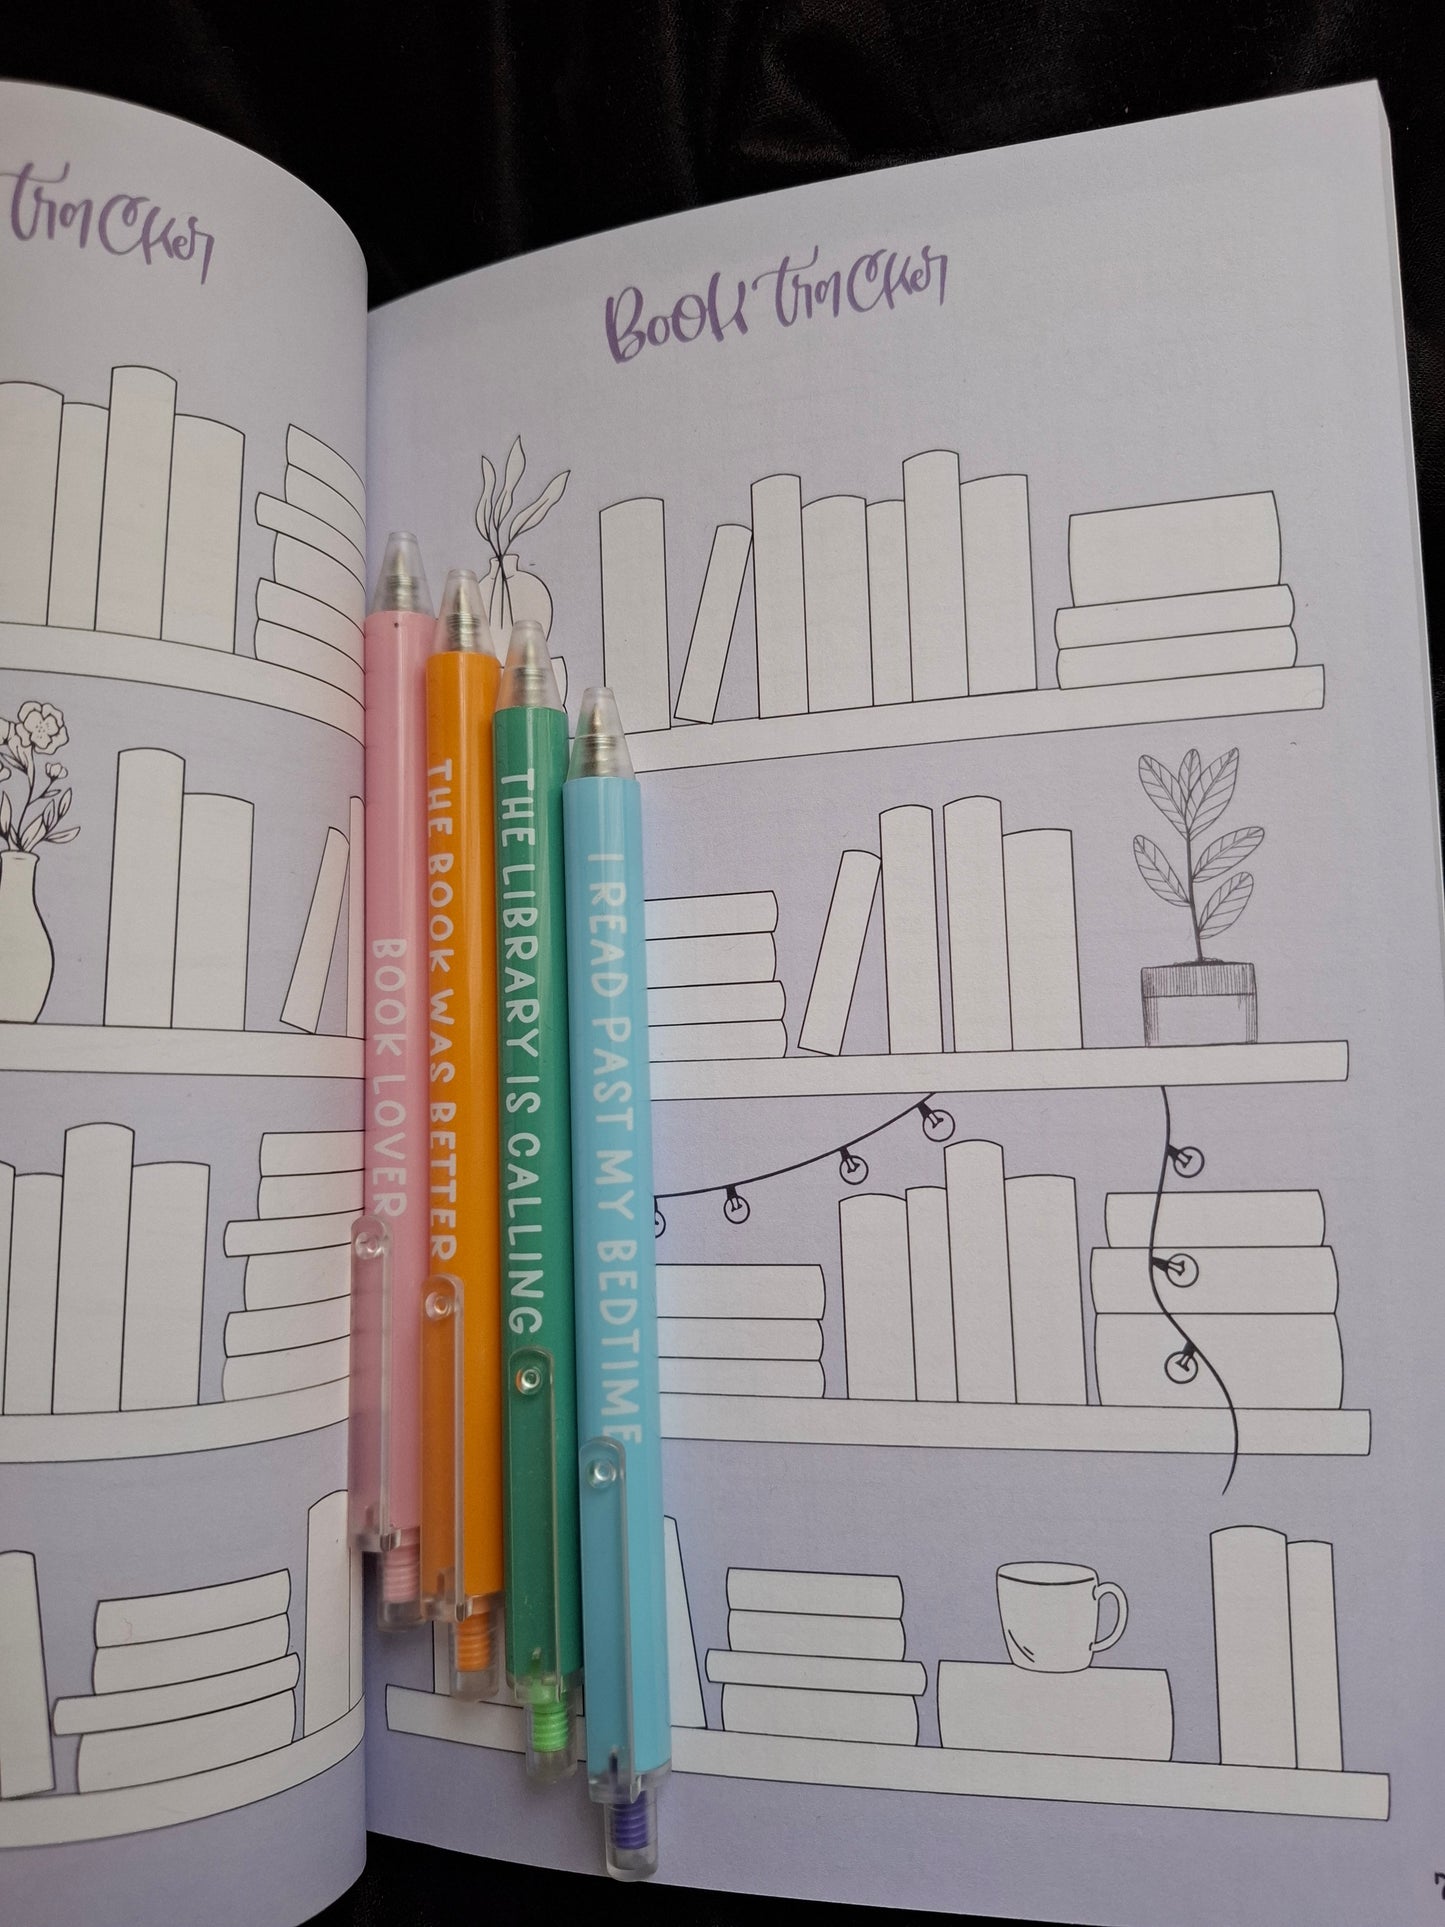 tracker
Book tracker
BOOK LOVER
THE BOOK WAS BETTER
THE LIBRARY IS CALLING
I READ PAST MY BEDTIME